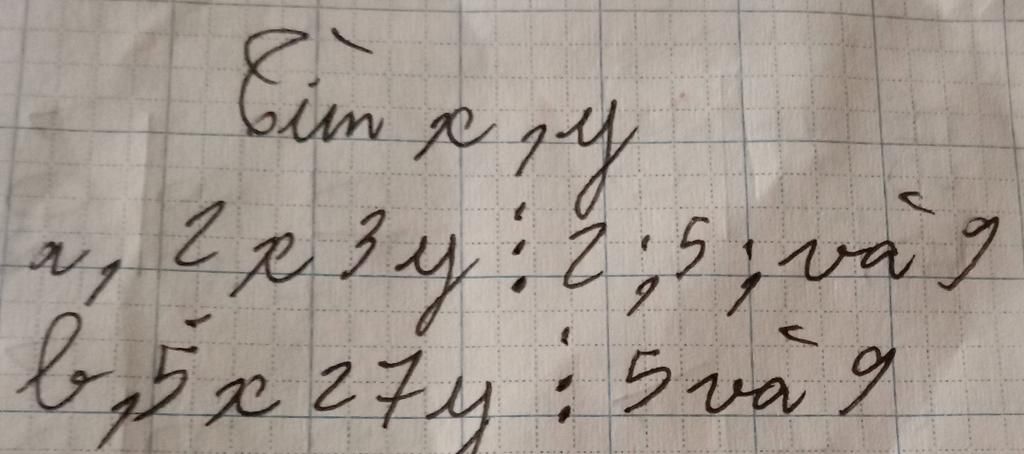 Tìm x, y
a, 2x3y ⋮ 2; 5; và 9
b, 5x27y ⋮ 5 và 9